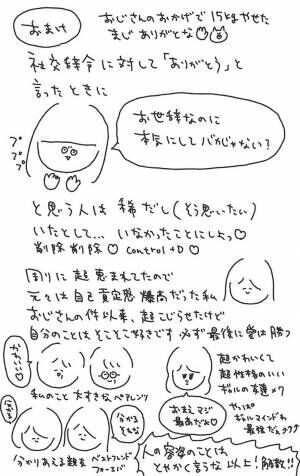 おまけ
おじさんのおかげで15kgやせた
まじ ありがとな
社交辞令に対して「ありがとう」と
言ったときに
お世辞なのに
本気にして バカじゃない？
プププ
と思う人は 稀だし(そう思いたい)
いたとして… いなかったことにしよっ♡
削除 削除♡ control+D♡
周りに超恵まれてたので
元々は自己肯定感 爆高だった私
おじさんの件以来、超こじらせたけど
自分のことはとことん好きです 必ず最後に愛は勝つ
かわいい♡
私のこと大すきなペアレンツ
おまえ マジ
最高だよ♡
超かわいくて
超性格のいい
ギャルの友達 メク
やっぱ
ギャルマインドわ
最強だょ
分かる
とんな
分かりあえる親友 ベストフレンド
フォーエバ
人の容姿のことは
とやかく言うな 以上！解散！！